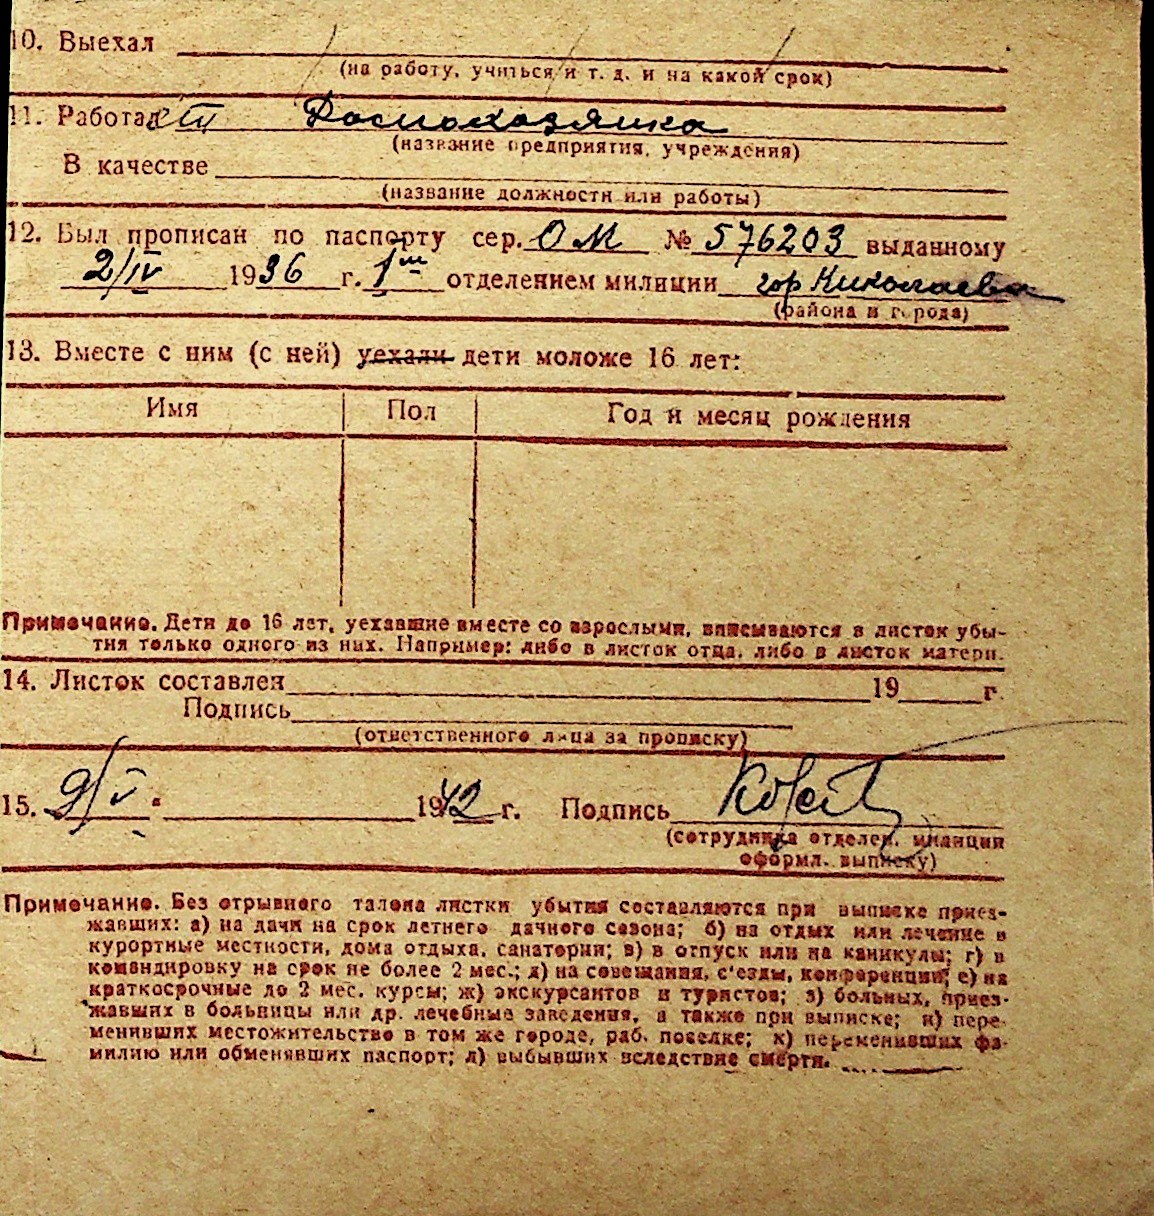 10. Выехал
(на работу, учиться и т. д. и на какой срок)
11. Работает Домохозяйка
(название предприятия, учреждения)
В качестве
(название должности или работы)
12. Был прописан по паспорту сер. ОМ № 576203 выданному
2/IV 1936 г. 1м отделением милиции гор Николаева
(района и города)
13. Вместе с ним (с ней) уехали дети моложе 16 лет:
Имя Пол Год и месяц рождения
Примечание. Дети до 16 лет, уехавшие вместе со взрослыми, вписываются в листок убы-
тия только одного из них. Например: либо в листок отца, либо в листок матери.
14. Листок составлен 19 г.
Подпись
(ответственного лица за прописку)
15. 9/V 1942 г. Подпись
(сотрудника отделен. милиции
оформл. выписку)
Примечание. Без отрывного талона листки убытия составляются при выписке приез-
жавших: а) на дачи на срок летнего дачного сезона; б) на отдых или лечение в
курортные местности, дома отдыха, санатории; в) в отпуск или на каникулы; г) в
командировку на срок не более 2 мес.; д) на совещания, с'езды, конференции; е) на
краткосрочные до 2 мес. курсы; ж) экскурсантов и туристов; з) больных, приез-
жавших в больницы или др. лечебные заведения, а также при выписке; и) пере-
менивших местожительство в том же городе, раб. поселке; к) переменивших фа-
милию или обменявших паспорт; л) выбывших вследствие смерти.